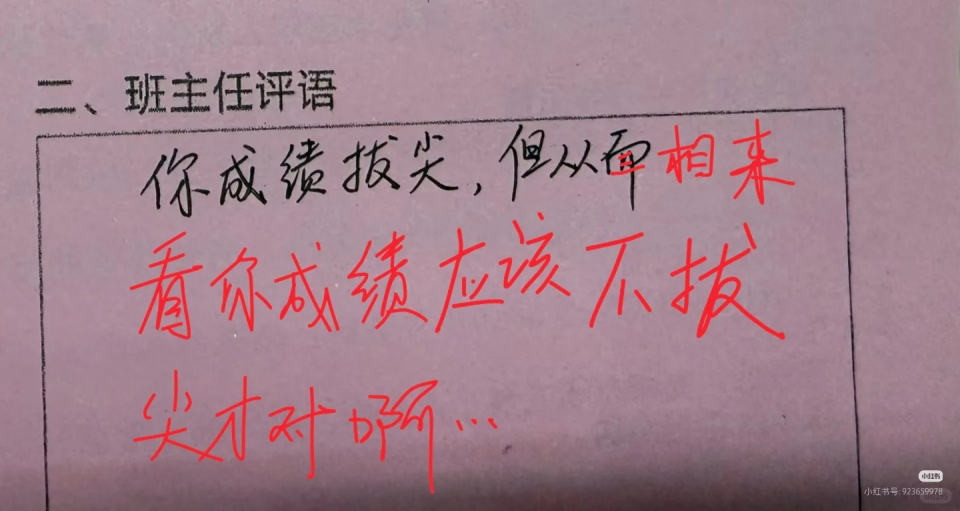 二、班主任评语
你成绩拔尖，但从面相来
看你成绩应该不拔
尖才对啊…
小红书
小红书号: 923659978